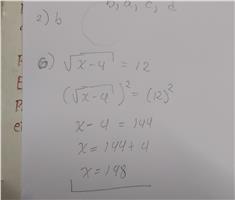 b, a, c, d
2) b
6) √x-4 = 12
(√x-4)² = (12)²
x - 4 = 144
x = 144 + 4
x = 148